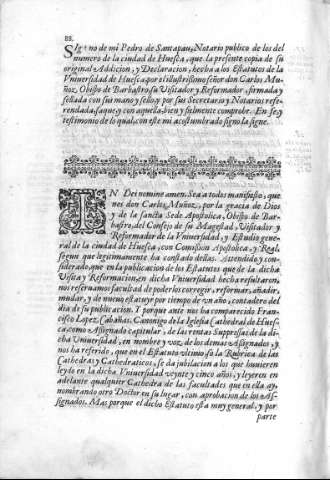 88.
Signo de mi Pedro de Santapau, Notario publico de los del
numero de la ciudad de Huesca, que la presente copia de su
original Addicion, y Declaracion, hecha a los Estatutos de la
Vniuersidad de Huesca, por el illustrissimo señor don Carlos Mu-
ñoz, Obispo de Barbastro, su Visitador y Reformador, firmada y
sellada con su mano y sello, y por sus Secretarios y Notarios refe-
rendada, saque, y con aquella, bien y fielmente comprobe. En fe, y
testimonio de lo qual, con este mi acostumbrado signo la signe.
IN Dei nomine amen. Sea a todos manifiesto, que
nos don Carlos Muñoz, por la gracia de Dios
y de la sancta Sede Apostolica, Obispo de Bar-
bastro, del Consejo de su Magestad, Visitador y
Reformador de la Vniuersidad, y Estudio gene-
ral de la ciudad de Huesca, con Comission Apostolica, y Real,
segun que legitimamente ha constado dellas. Attendido, y con-
siderado, que en la publicacion de los Estatutos que de la dicha
Visita y Reformacion, en dicha Vniuersidad hecha resultaron,
nos reseruamos facultad de poderlos corregir, reformar, añadir,
mudar, y de nueuo estatuyr por tiempo de vn año, contadero del
dia de su publicacion. Y porque ante nos ha comparecido Fran-
cisco Lopez Cabañas, Canonigo de la Iglesia Cathedral de Hues-
ca, como Assignado capitular, de las rentas Suppressas de la di-
cha Vniuersidad, en nombre y voz, de los demas Assignados, y
nos ha referido, que en el Estatuto vltimo so la Rubrica de las
Cathedras y Cathedraticos, se da jubilacion a los que huuieren
leydo en la dicha Vniuersidad veynte y cinco años, y leyeren en
adelante qualquier Cathedra de las facultades que en ella ay,
nombrando otro Doctor en su lugar, con aprobacion de los As-
signados. Mas porque el dicho Estatuto esta muy general, y por
parte